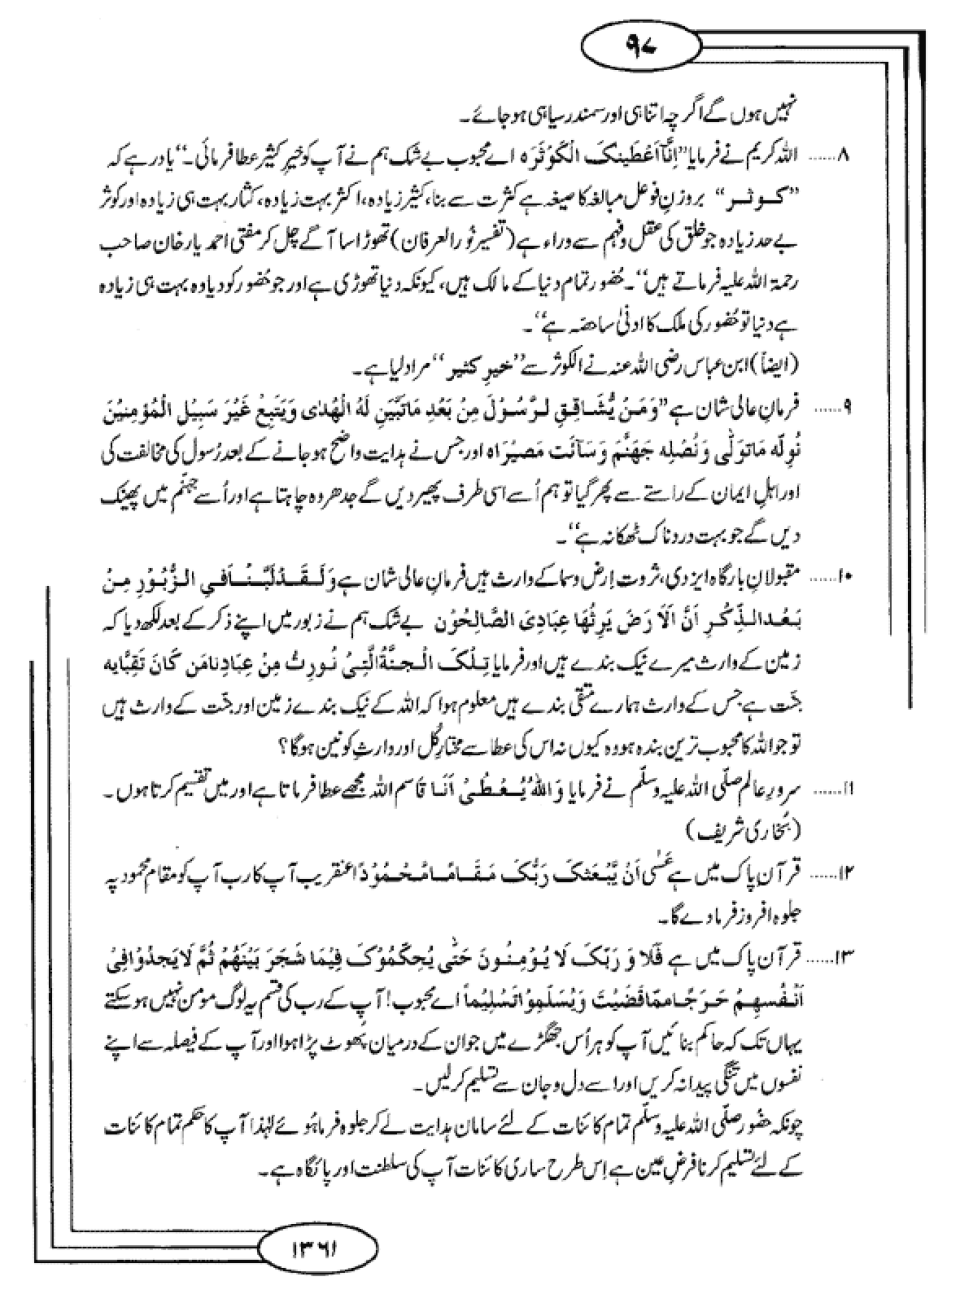 ۹۷
نہیں ہوں گے اگرچہ اتنا ہی اور سمندر سیاہی ہو جائے۔
۸...... اللہ کریم نے فرمایا ”اِنَّآ اَعْطَیْنٰکَ الْکَوْثَرَہ اے محبوب بے شک ہم نے آپ کو خیرِ کثیر عطا فرمائی۔“ یاد رہے کہ
”کوثر“ بروزنِ فوعل مبالغہ کا صیغہ ہے کثرت سے بنا، کثیر زیادہ، اکثر بہت زیادہ، کثار بہت ہی زیادہ اور کوثر
بے حد زیادہ جو خلق کی عقل و فہم سے وراء ہے (تفسیر نُور العرفان) تھوڑا سا آگے چل کر مفتی احمد یار خان صاحب
رحمۃ اللہ علیہ فرماتے ہیں“۔ حضور تمام دنیا کے مالک ہیں، کیونکہ دنیا تھوڑی ہے اور جو حُضور کو دیا وہ بہت ہی زیادہ
ہے دنیا تو حُضور کی ملک کا ادنیٰ سا حصّہ ہے“۔
(ایضاً) ابن عباس رضی اللہ عنہ نے الکوثر سے ”خیرِ کثیر“ مراد لیا ہے۔
۹...... فرمانِ عالی شان ہے ”وَمَنْ یُّشَاقِقِ لرَّسُوْلَ مِنْ بَعْدِ مَاتَبَّیَنَ لَهُ الْهُدٰى وَيَتَّبِعْ غَيْرَ سَبِيْلِ الْمُؤْمِنِيْنَ
نُوَلِّه مَاتَوَلّٰى وَنُصْلِه جَهَنَّمَ وَسَآئَت مَصِيْرَاه اور جس نے ہدایت واضح ہو جانے کے بعد رُسول کی مخالفت کی
اور اہلِ ایمان کے راستے سے پھر گیا تو ہم اُسے اسی طرف پھیر دیں گے جدھر وہ چاہتا ہے اور اُسے جہنّم میں پھینک
دیں گے جو بہت دردناک ٹھکانہ ہے“۔
۱۰...... مقبولانِ بارگاہ ایزدی، ثروت اِرض و سما کے وارث ہیں فرمانِ عالی شان ہے وَلَقَدْ کَتَبْنَا فِی الزَّبُوْرِ مِنْ
بَعْدِ الذِّکْرِ اَنَّ الْاَرْضَ یَرِثُهَا عِبَادِیَ الصَّالِحُوْن بے شک ہم نے زبور میں اپنے ذکر کے بعد لکھ دیا کہ
زمین کے وارث میرے نیک بندے ہیں اور فرمایا تِلْکَ الْجَنَّةُ الَّتِیْ نُورِثُ مِنْ عِبَادِنَا مَن کَانَ تَقِیَّا یہ
جنّت ہے جس کے وارث ہمارے متقی بندے ہیں معلوم ہوا کہ اللہ کے نیک بندے زمین اور جنّت کے وارث ہیں
تو جو اللہ کا محبوب ترین بندہ ہو وہ کیوں نہ اس کی عطا سے مختارِ کُل اور وارثِ کونین ہوگا؟
۱۱...... سرورِ عالم صلّی اللہ علیہ وسلّم نے فرمایا وَاللہُ یُعْطِیْ اَنَا قَاسِم اللہ مجھے عطا فرماتا ہے اور میں تقسیم کرتا ہوں۔
(بُخاری شریف)
۱۲...... قرآنِ پاک میں ہے عَسٰی اَنْ یَّبْعَثَکَ رَبُّکَ مَقَامًا مَّحْمُوْدًا عنقریب آپ کا رب آپ کو مقام محمود پہ
جلوہ افروز فرما دے گا۔
۱۳...... قرآن پاک میں ہے فَلَا وَ رَبِّکَ لَا یُؤمِنُونَ حَتّٰی یُحَکِّمُوْکَ فِیْمَا شَجَرَ بَیْنَهُمْ ثُمَّ لَا یَجِدُوْا فِیْ
اَنْفُسِهِمْ حَرَجًا مِمَّا قَضَیْتَ وَ یُسَلِّمِوْا تَسْلِیْمًا اے محبوب! آپ کے رب کی قسم یہ لوگ مومن نہیں ہو سکتے
یہاں تک کہ حاکم بنائیں آپ کو ہر اُس جھگڑے میں جو ان کے درمیان پھُوٹ پڑا ہوا اور آپ کے فیصلہ سے اپنے
نفسوں میں تنگی پیدا نہ کریں اور اسے دل و جان سے تسلیم کرلیں۔
چونکہ حضُور صلّی اللہ علیہ وسلّم تمام کائنات کے لئے سامان ہدایت لے کر جلوہ فرما ہُوئے لہٰذا آپ کا حکم تمام کائنات
کے لئے تسلیم کرنا فرضِ عین ہے اِس طرح ساری کائنات آپ کی سلطنت اور پائگاہ ہے۔
۱۳۶۱